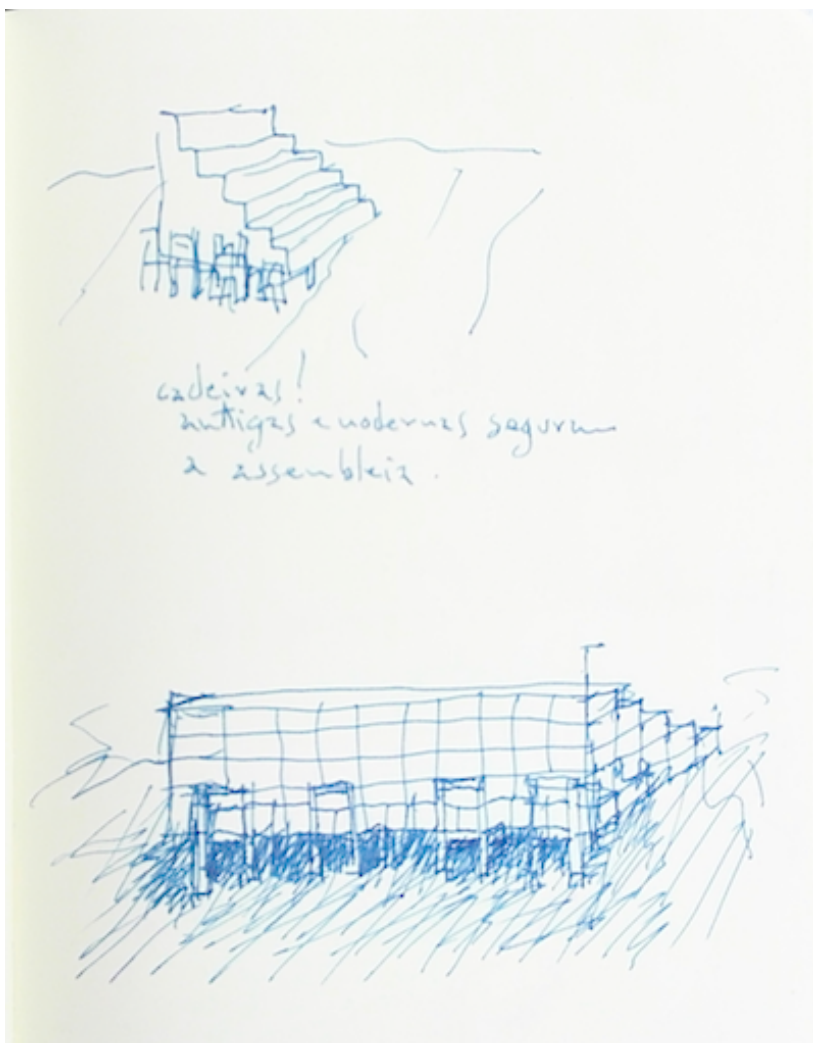 cadeiras!
antigas e modernas seguram
a assembleia.